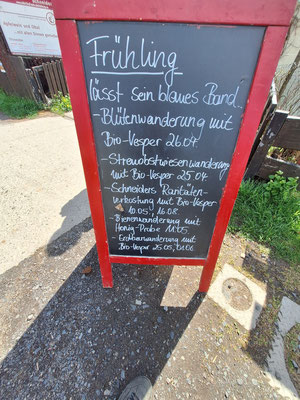 Frühling
lässt sein blaues Band..
- Blütenwanderung mit
Bio-Vesper 26.04.
- Streuobstwiesenwanderung
mit Bio-Vesper 25.04
- Schneiders Raritäten-
verkostung mit Bio-Vesper
10.05., 16.08
- Bienenwanderung mit
Honig-Probe 11.05
- Erdbeerwanderung mit
Bio-Vesper 25.05, 01.06